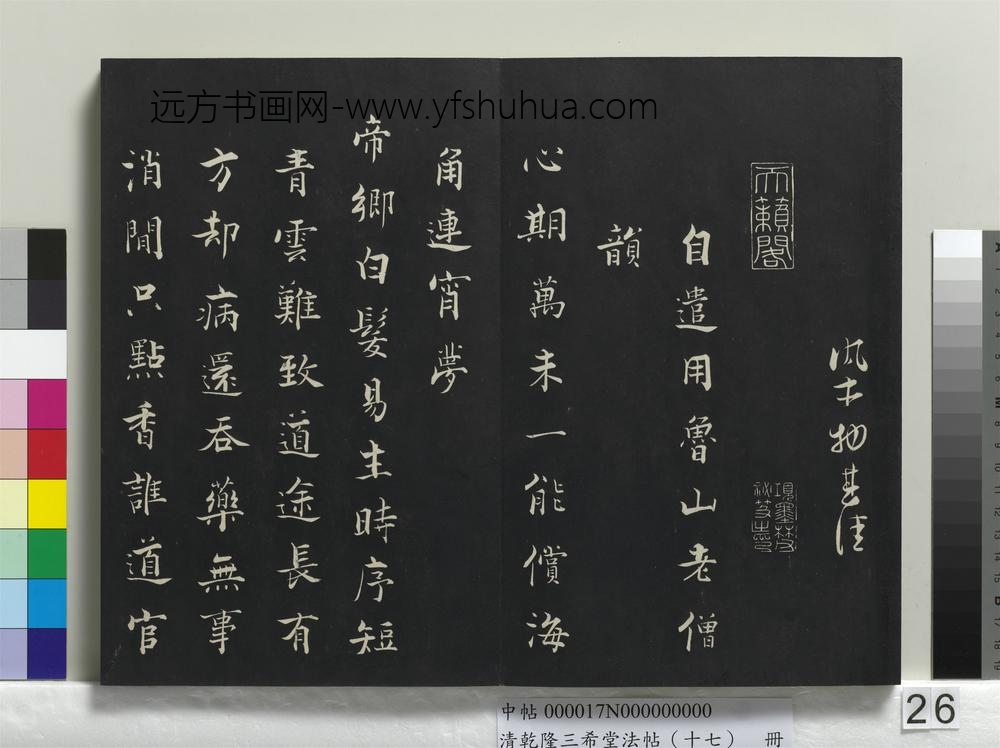 远方书画网-www.yfshuhua.com
風土物甚佳
天籟閣
項墨林
祕笈之印
自遣用魯山老僧
韻
心期萬未一能償海
角連宵夢
帝鄉白髮易生時序短
青雲難致道途長有
方却病還吞藥無事
消閒只點香誰道官
中帖 000017N000000000
清乾隆三希堂法帖（十七） 冊
26